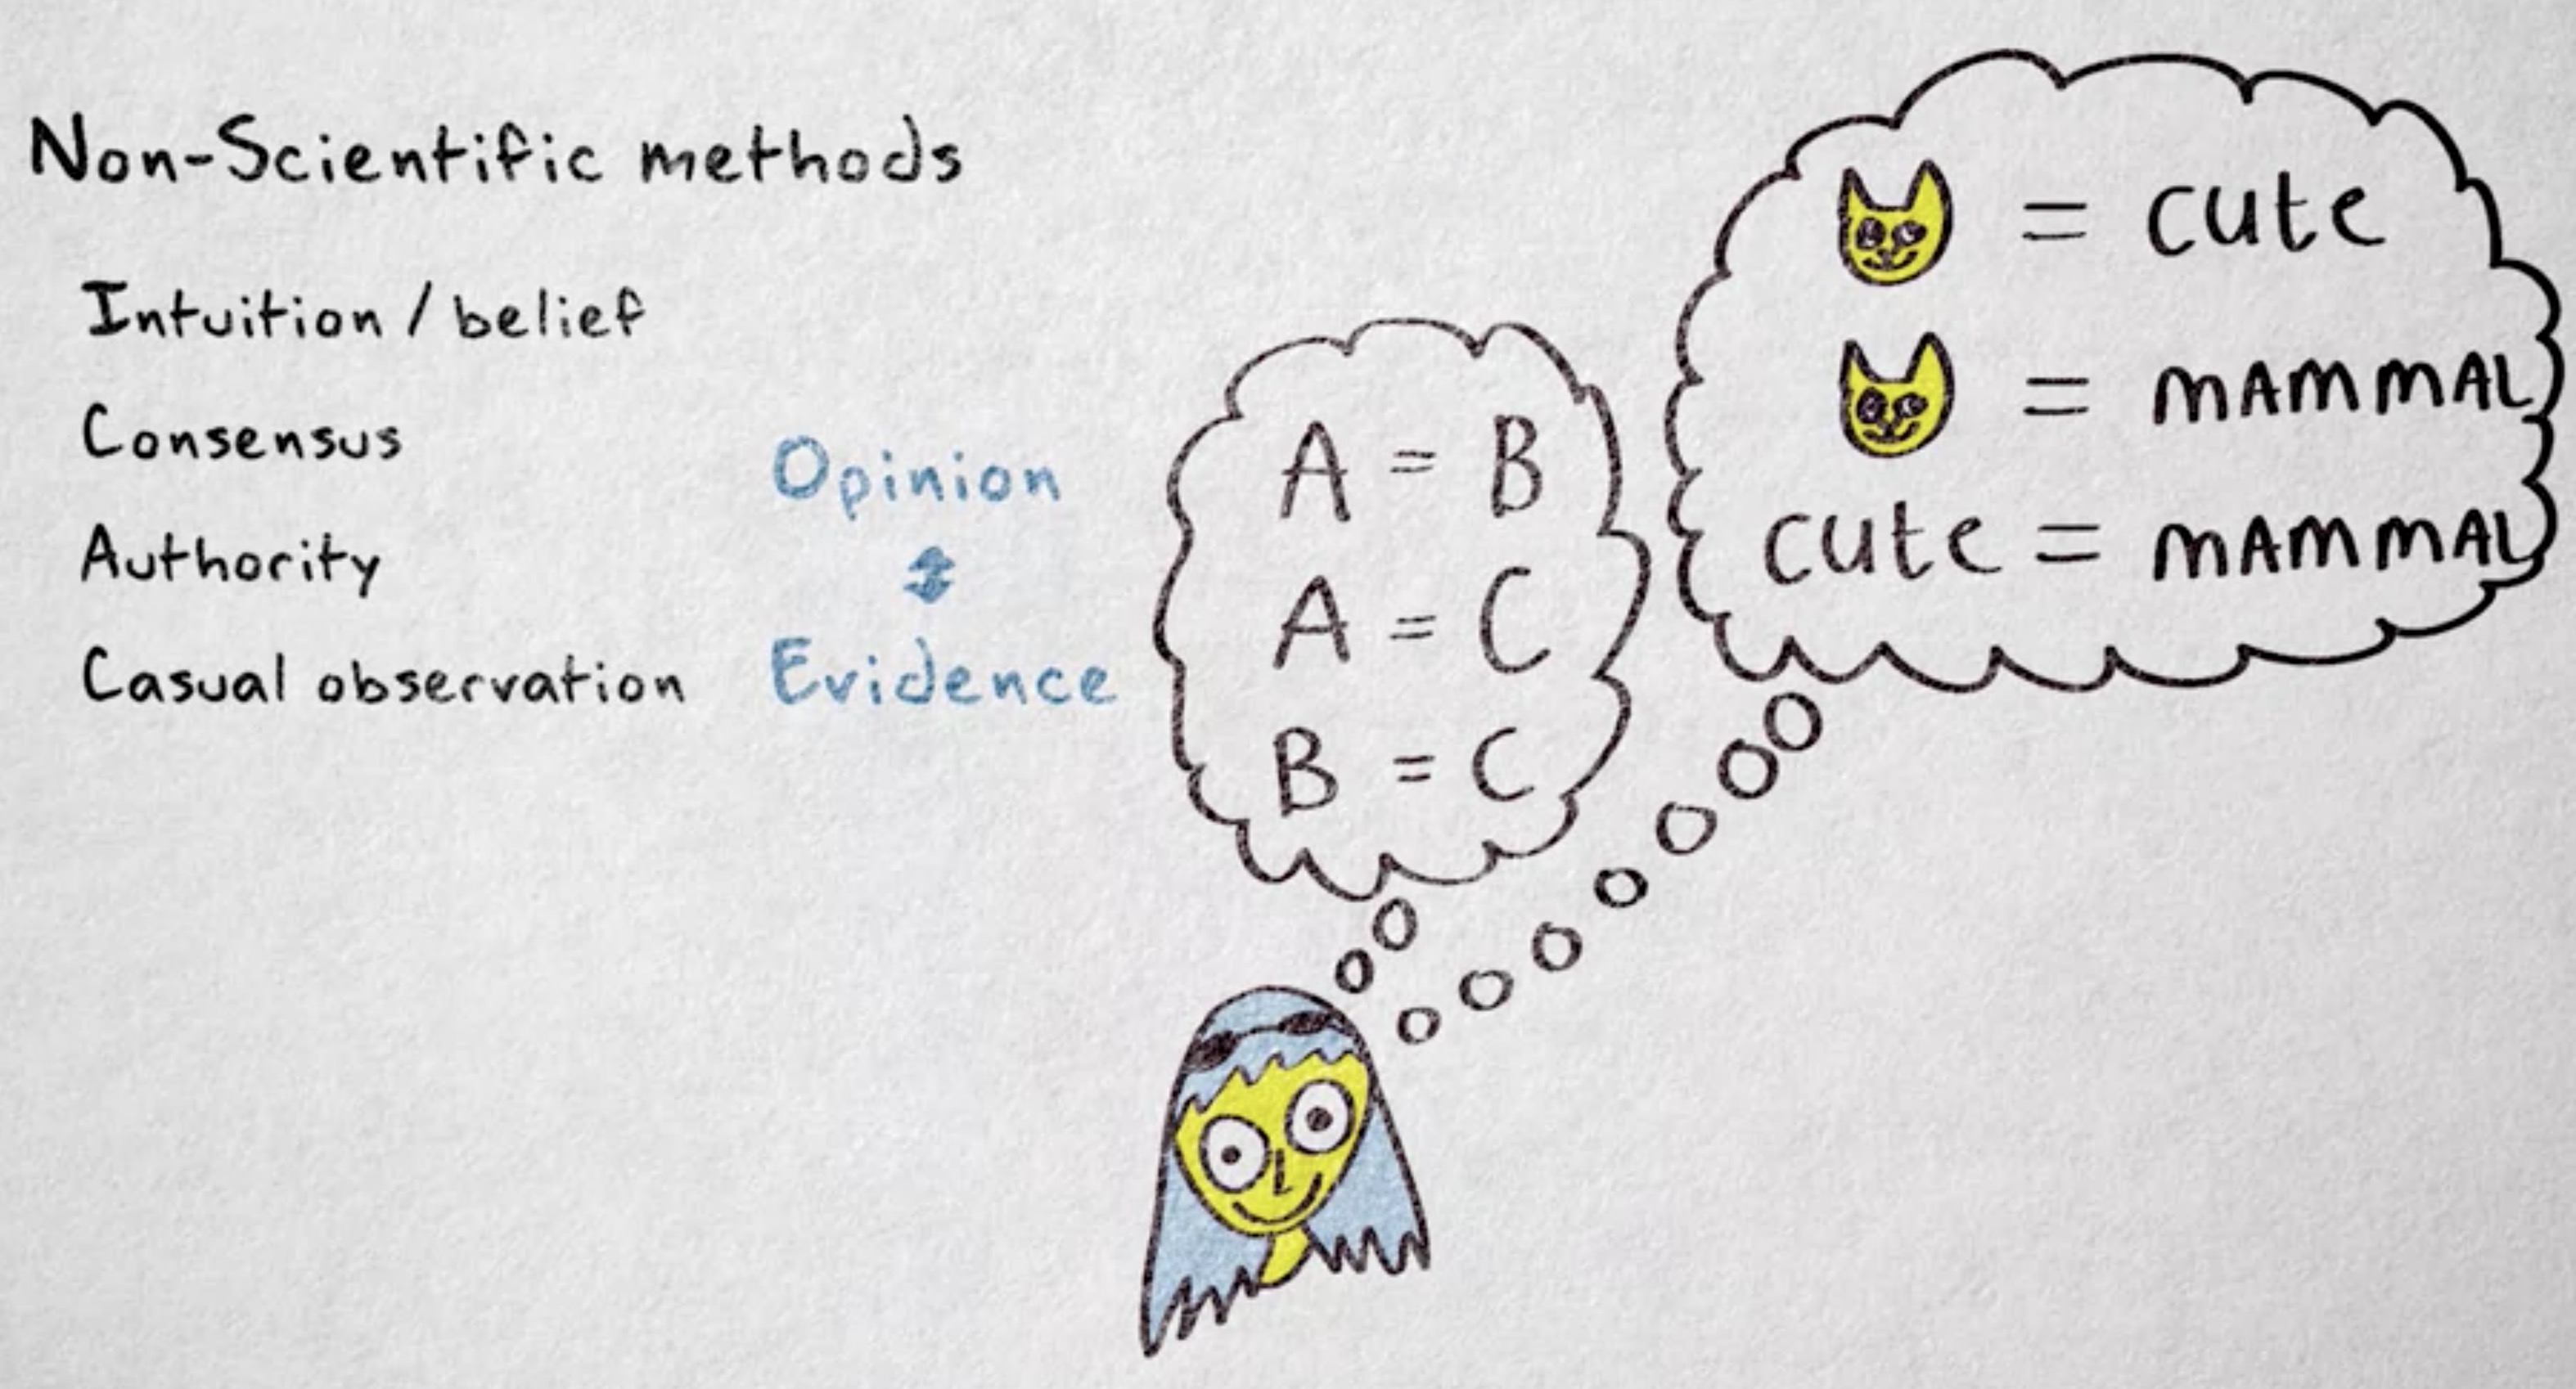 Non-Scientific methods
Intuition / belief
Consensus
Authority
Casual observation
Opinion
Evidence
A = B
A = C
B = C
= cute
= MAMMAL
cute = MAMMAL